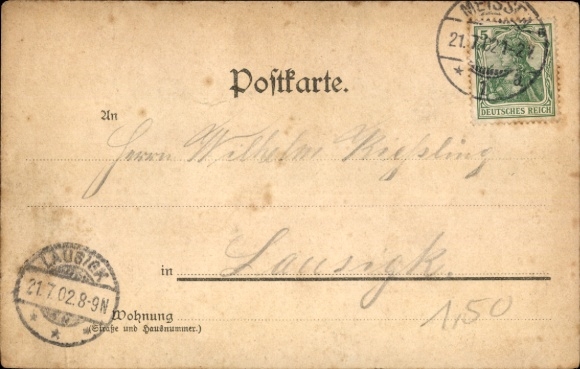 MEISSEN
21.7.02 1-2
1
5
DEUTSCHES REICH
Postkarte.
An
Herrn Wilhelm Kießling
in Lausigk.
LAUSIGK
21.7.02.8-9N
Wohnung
(Straße und Hausnummer.)
1,50